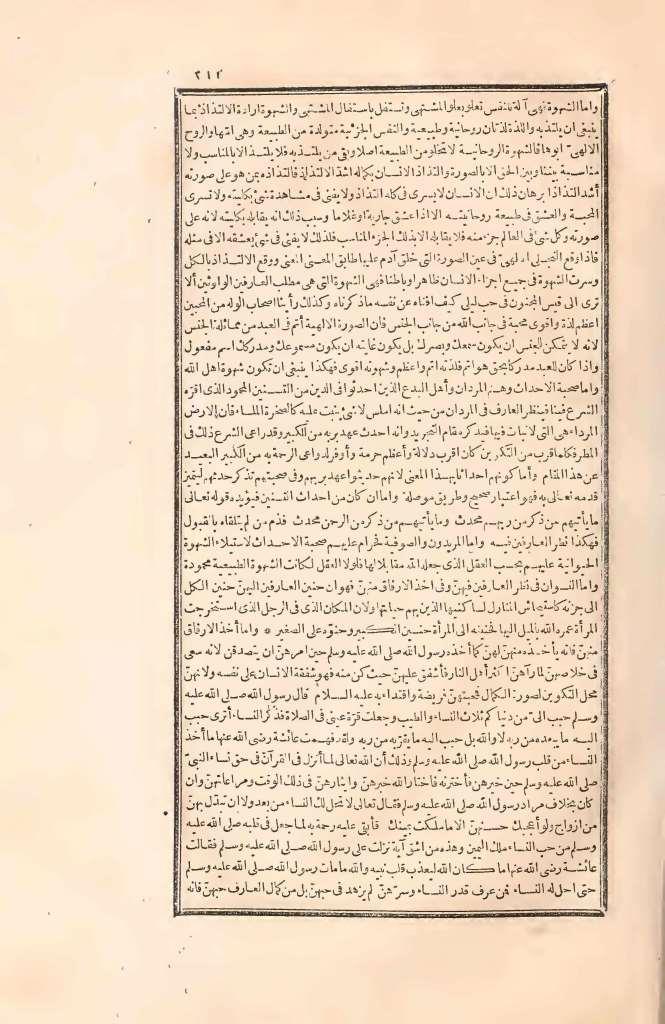 ٢١٢
واما الشهوة فهي آلة للنفس تعلو بعلو المشتهى وتستفل باستفال المشتهى والشهوة ارادة الالتذاذ بما
ينبغي ان يلتذ به واللذة لذتان روحانية وطبيعية والنفس الجزئية متولدة من الطبيعة وهي امها والروح
الالهي ابوها فالشهوة الروحانية لا تخلو من الطبيعة اصلا وبقي من يلتذ به فلا يلتذ الا بالمناسب ولا
مناسبة بيننا وبين الحق الا بالصورة والتذاذ الانسان بكماله اشد الالتذاذ فالتذاذه بمن هو على صورته
أشد التذاذا برهان ذلك ان الانسان لا يسرى في كله التذاذ ولا يفنى في مشاهدة شئ بكليته ولا تسرى
المحبة والعشق في طبيعة روحانيته الا اذا عشق جارية أو غلاما وسبب ذلك انه يقابله بكليته لانه على
صورته وكل شئ في العالم جزء منه فلا يقابله الا بذلك الجزء المناسب فلذلك لا يفنى في شئ يعشقه الا في مثله
فاذا وقع التجلي الالهي في عين الصورة التي خلق آدم عليها طابق المعنى المعنى ووقع الالتذاذ بالكل
وسرت الشهوة في جميع اجزاء الانسان ظاهرا وباطنا فهي الشهوة التي هي مطلب العارفين الوارثين ألا
ترى الى قيس المجنون في حب ليلى كيف افناه عن نفسه لما ذكرناه وكذلك رأينا اصحاب الوله من المحبين
اعظم لذة واقوى محبة في جانب الله من جانب الجنس فان الصورة الالهية أتم في العبد من مماثلة الجنس
لانه لا يتمكن للجنس ان يكون سمعك وبصرك بل يكون غايته ان يكون مسموعك ومدركك اسم مفعول
واذا كان للعبد مدركا بحق هو اتم فلذته اتم واعظم وشهوته اقوى فهكذا ينبغي ان تكون شهوة اهل الله
واما صحبة الاحداث وهم المردان وأهل البدع الذين احدثوا في الدين من التسنين المحمود الذي اقره
الشرع فينا فينظر العارف في المردان من حيث انه املس لا شئ ينبت عليه كالصخرة الملساء فان الارض
المرداء هي التي لا نبات فيها فيذكره مقام التجريد وانه احدث عهد بربه من الكبير وقد راعى الشرع ذلك في
المطر فكلما قرب من التكوين كان اقرب دلالة وأعظم حرمة وأوفر لدواعي الرحمة به من الكبير البعيد
عن هذا المقام وأما كونهم احداثا بهذا المعنى لانهم حديثو عهد بربهم وفي صحبتهم تذكر حدثهم ليتميز
قدمه تعالى به فهو اعتبار صحيح وطريق موصلة واما ان كان من احداث التسنين فيؤيده قوله تعالى
ما يأتيهم من ذكر من ربهم محدث وما يأتيهم من ذكر من الرحمن محدث فذم من لم يتلقاه بالقبول
فهكذا نظر العارفين فيه واما المريدون والصوفية فحرام عليهم صحبة الاحداث لاستيلاء الشهوة
الحيوانية عليهم بسبب العقل الذي جعله الله مقابلا لها فلولا العقل لكانت الشهوة الطبيعية محمودة
واما النسوان فنظر العارفين فيهن وفي اخذ الارفاق منهن فهو ان حنين العارفين اليهن حنين الكل
الى جزئه كاستيحاش المنازل لساكنيها الذين بهم حياتها ولان المكان الذي في الرجل الذي استخرجت
المرأة عمره الله بالميل اليها فحنينه الى المرأة حنين الكبير وحنوه على الصغير * واما أخذ الارفاق
منهن فانه يأخذه منهن لهن كما أخذه رسول الله صلى الله عليه وسلم حين امرهن ان يتصدقن لانه سعى
في خلاصهن لما رآهن اكثر أهل النار فأشفق عليهن حيث كن منه فهو شفقة الانسان على نفسه ولانهن
محل التكوين لصورة الكمال فحبهن فريضة واقتداء به عليه السلام قال رسول الله صلى الله عليه
وسلم حبب الي من دنياكم ثلاث النساء والطيب وجعلت قرة عيني في الصلاة فذكر النساء أترى حبب
اليه ما يبعده من ربه لا والله بل حبب اليه ما يقربه من ربه ولقد فهمت عائشة رضى الله عنها ما أخذ
النساء من قلب رسول الله صلى الله عليه وسلم وذلك أن الله تعالى لما أنزل في القرآن في حق نساء النبي
صلى الله عليه وسلم حين خيرهن فأخترنه فاختار الله خيرهن وايثارهن في ذلك الوقت ومراعاتهن وان
كان بخلاف مراد رسول الله صلى الله عليه وسلم فقال تعالى لا تحل لك النساء من بعد ولا ان تبدل بهن
من ازواج ولو أعجبك حسنهن الا ما ملكت يمينك فأبقى عليه رحمة به لما جعل في قلبه صلى الله عليه
وسلم من حب النساء ملك اليمين وهذه من اشق آية نزلت على رسول الله صلى الله عليه وسلم فقالت
عائشة رضى الله عنها ما كان الله ليعذب قلب نبيه والله ما مات رسول الله صلى الله عليه وسلم
حتى احل له النساء فمن عرف قدر النساء وسرهن لم يزهد في حبهن بل من كمال العارف حبهن فانه